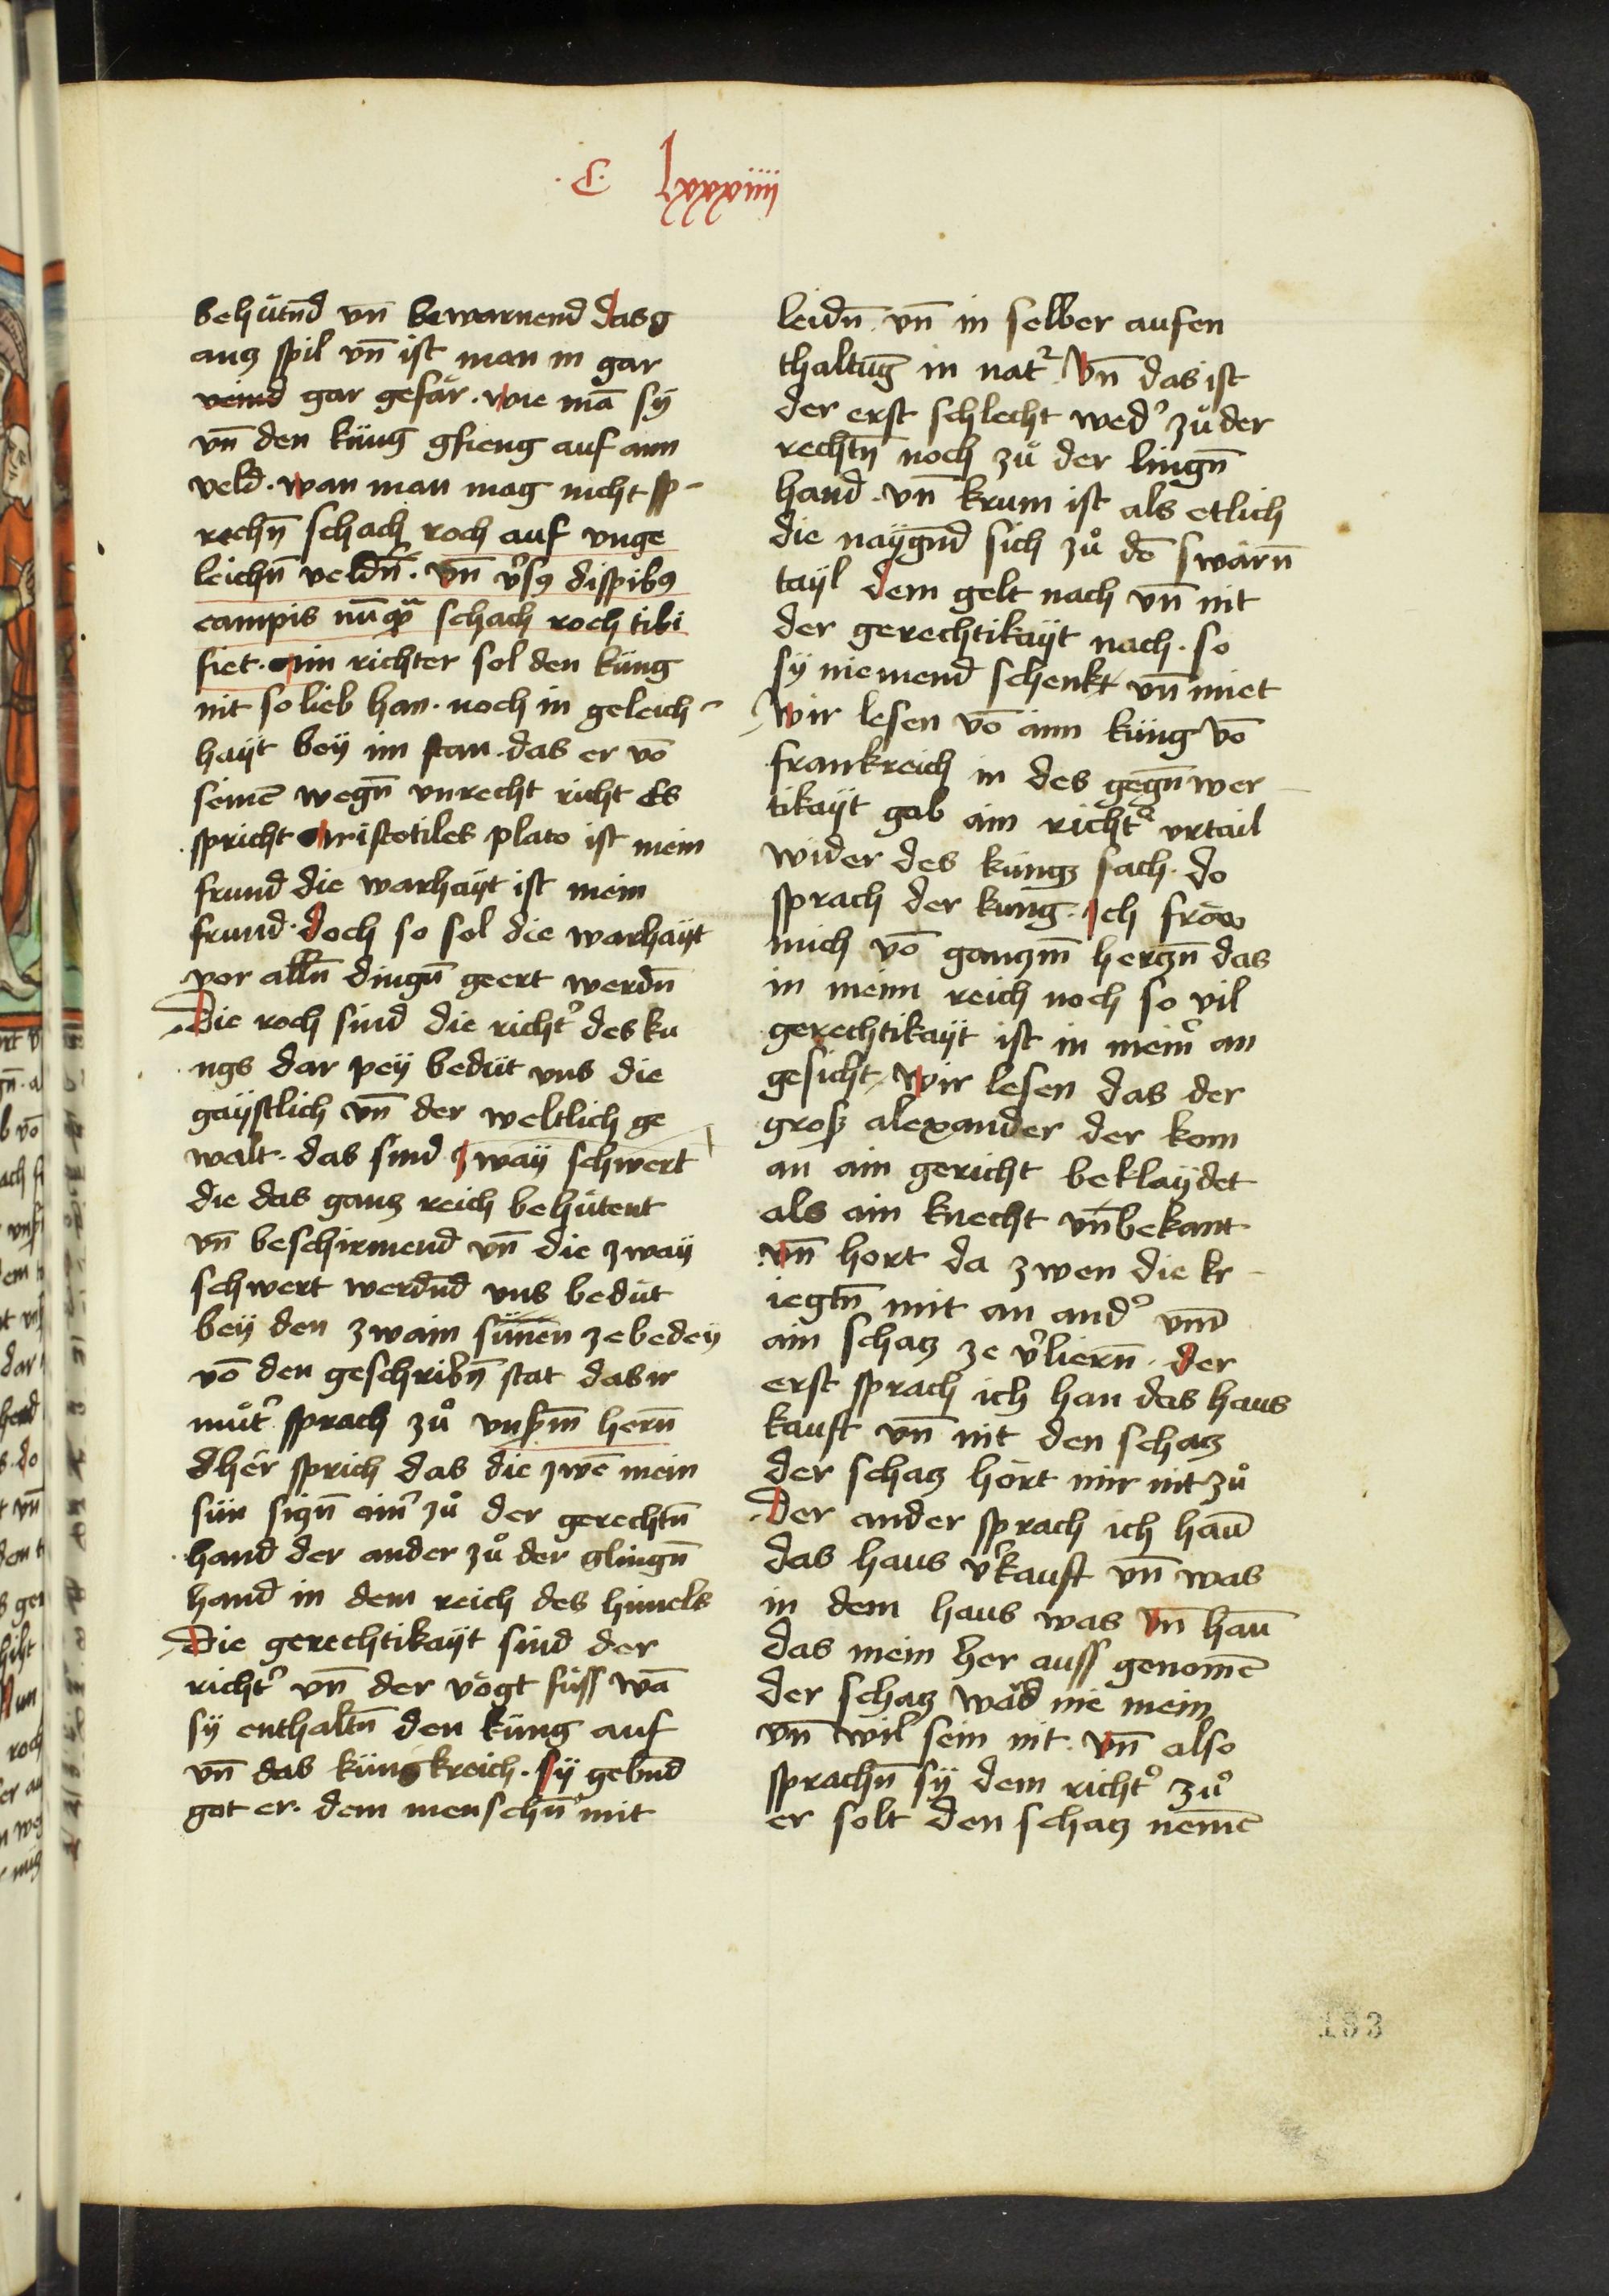 .C. lxxxviiii
behütn̄d vn̄ bewarnend das g
ancz spil vn̄ ist man in gar
veind gar gefär. wie mā sÿ
vn̄ den küng gfieng auf aim
veld. wan man mag nicht sp-
rechn̄ schach roch auf vnge
leichn̄ veldn̄. vn̄ v̾sꝰ dispibꝰ
campis nūqͣ schach roch tibi
fiet. ain richter sol den küng
nit so lieb han. noch in geleich-
haÿt beÿ im stan. das er vō
seinē wegn̄ vnrecht richt Es
spricht Aristotiles plato ist mein
frund die warhaÿt ist mein
frund. doch so sol die warhaÿt
vor alln̄ dingn̄ geert werdn̄
Die roch sind die richt̾ des ku
ngs dar peÿ bedüt vns die
gaÿstlich vn̄ der weltlich ge
walt. das sind zwaÿ schwert
die das gancz reich behütent
vn̄ beschirmend vn̄ die zwaÿ
schwert werdn̄d vns bedüt
beÿ den zwain sünen zebedeÿ
vō den geschribn̄ stat das ir
müt̾ sprach zů vnßm̄ hern̄
d her sprich das die zwē mein
sün sizn̄ ain̾ zů der gerechtn̄
hand der ander zů der glingn̄
hand in dem reich des himels
Die gerechtikaÿt sind der
richt̾ vn̄ der vögt füss wā
sÿ enthaltn̄ den küng auf
vn̄ das küngkreich. sÿ gebn̄d
got er. dem menschn̄ mit
leidn̄. vn̄ in selber aufen
thaltūg in nat̾. Vn̄ das ist
der erst schlecht wed̾ zů der
rechtn̄ noch zů der lingn̄
hand. vn̄ krum ist als etlich
die naÿgn̄d sich zů dē swärn̄
taÿl dem gelt nach vn̄ nit
der gerechtikaÿt nach. so
sÿ niemend schenkt vn̄ miet
Wir lesen vō aim küng vō
frankreich in des gegn̄wer-
tikaÿt gab ain richt̾ vrtail
wider des küngz sach. do
sprach der kung. Ich fröw
mich vō ganczm̄ herczn̄ das
in meim reich noch so vil
gerechtikaÿt ist in meim̾ an
gesicht. Wir lesen das der
groß alexander der kom
an ain gericht beklaÿdet
als ain knecht vn̄bekant
vn̄ hort da zwen die kr-
iegtn̄ mit an and̾ vm̄
ain schacz ze v̾liern̄. der
erst sprach ich han das haus
kauft vn̄ nit den schacz
der schacz hört mir nit zů
Der ander sprach ich hān
das haus v̾kauft vn̄ was
in dem haus was vn̄ hān
das mein her auss genomē
der schacz ward nie mein
vn̄ wil sein nit. vn̄ also
sprachn̄ sÿ dem richt̾ zů
er solt den schacz nemē
183